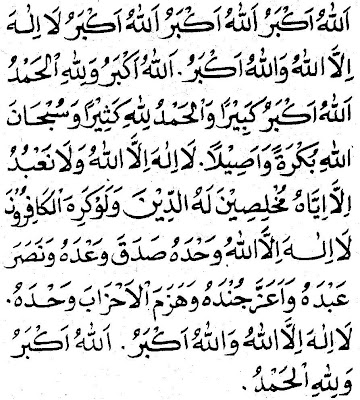 اَللهُ اَكْبَرُ اَللهُ اَكْبَرُ اَللهُ اَكْبَرُ لَا اِلٰهَ
اِلَّا اللهُ وَاللهُ اَكْبَرُ. اَللهُ اَكْبَرُ وَلِلّٰهِ الْحَمْدُ
اَللهُ اَكْبَرُ كَبِيْرًا وَالْحَمْدُ لِلّٰهِ كَثِيْرًا وَسُبْحَانَ
اللهِ بُكْرَةً وَاَصِيْلًا. لَا اِلٰهَ اِلَّا اللهُ وَلَا نَعْبُدُ
اِلَّا اِيَّاهُ مُخْلِصِيْنَ لَهُ الدِّيْنَ وَلَوْكَرِهَ الْكَافِرُوْنَ
لَا اِلٰهَ اِلَّا اللهُ وَحْدَهُ صَدَقَ وَعْدَهُ وَنَصَرَ
عَبْدَهُ وَاَعَزَّ جُنْدَهُ وَهَزَمَ الْاَحْزَابَ وَحْدَهُ.
لَا اِلٰهَ اِلَّا اللهُ وَاللهُ اَكْبَرُ. اَللهُ اَكْبَرُ
وَلِلّٰهِ الْحَمْدُ.